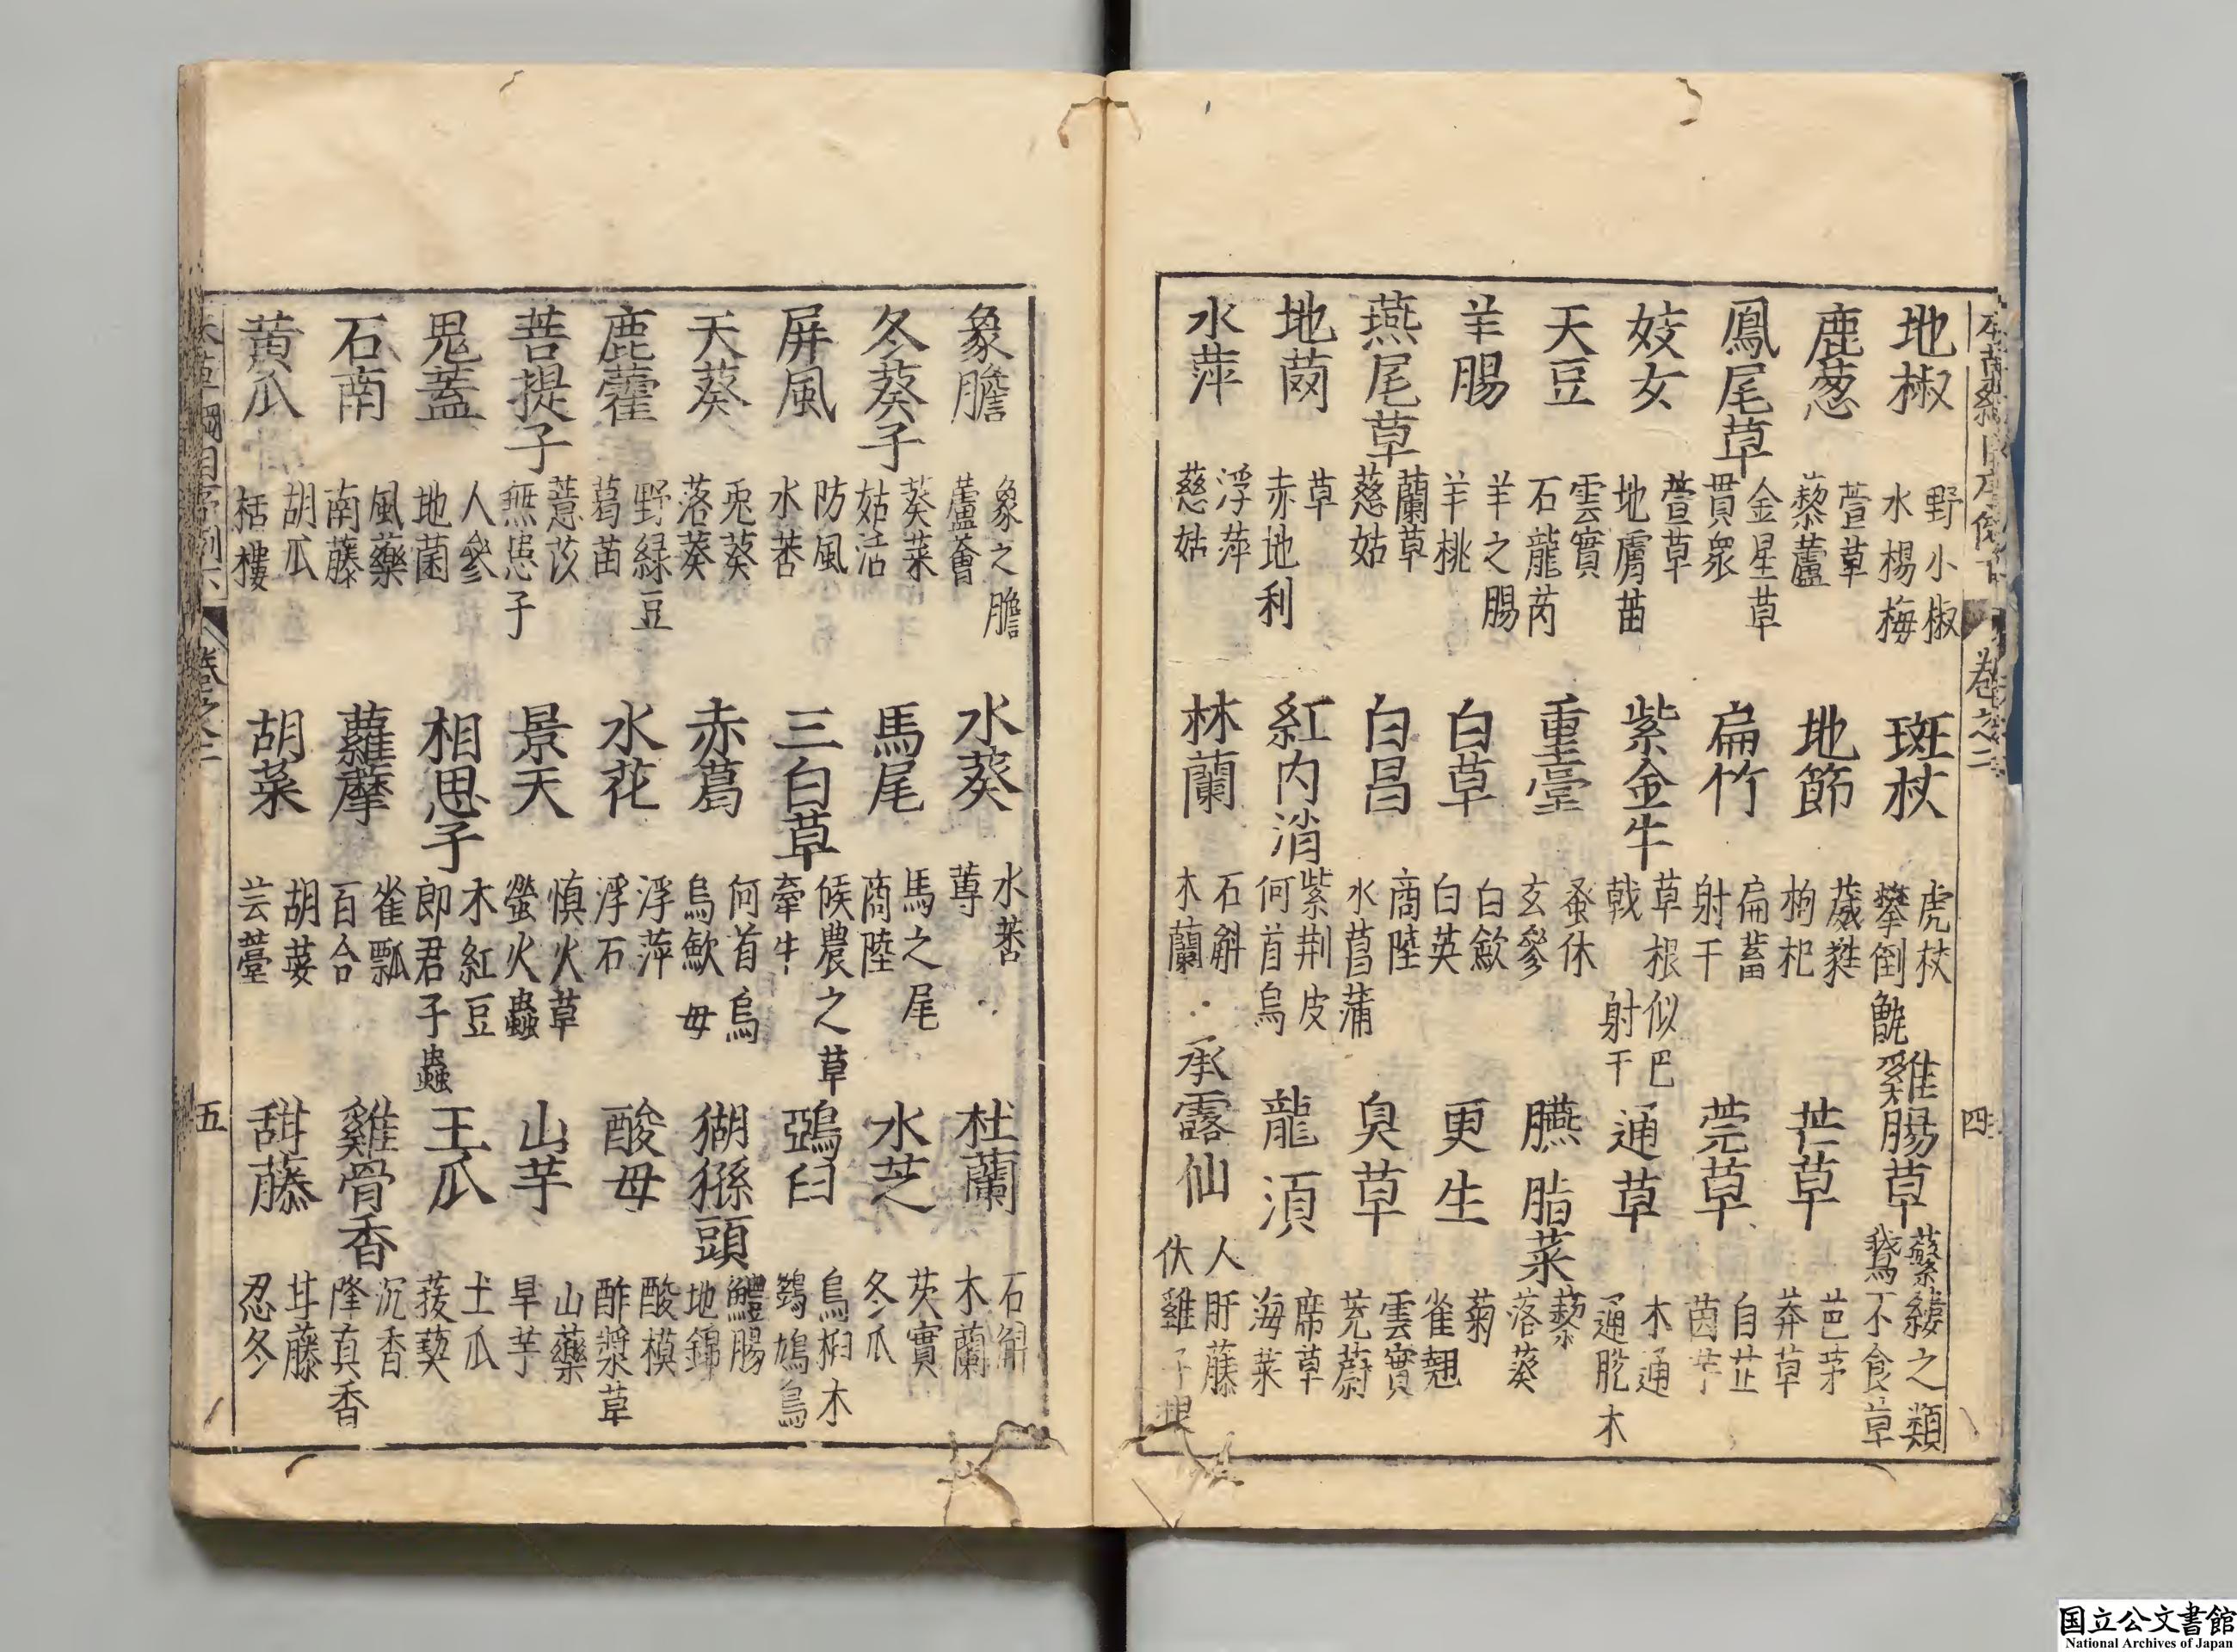 地椒 野小椒 水楊梅 斑杖 虎杖 攀倒甑 雞腸草 蘩縷之類 鵝不食草
鹿葱 萱草 藜蘆 地節 葳蕤 枸杞 芒草 芭茅 莽草
鳳尾草 金星草 貫衆 扁竹 扁蓄 射干 莞草 白芷 茵芋
妓女 萱草 地膚苗 紫金牛 草根似巴戟 射干 通草 木通 通脫木
天豆 雲實 石龍芮 重臺 蚤休 玄參 臙脂菜 藜 落葵
羊腸 羊之腸 羊桃 白草 白歛 白英 更生 菊 雀翹
燕尾草 蘭草 慈姑 白昌 商陸 水菖蒲 臭草 雲實 茺蔚
地茵 草 赤地利 紅內消 紫荆皮 何首烏 龍須 席草 海菜
水萍 浮萍 慈姑 林蘭 石斛 木蘭 承露仙 人肝藤 伏雞子根
卷之二 四
象膽 象之膽 蘆薈 水葵 水莕 蓴 杜蘭 石斛 木蘭
冬葵子 葵菜 姑活 馬尾 馬之尾 商陸 水芝 芡實 冬瓜
屏風 防風 水莕 三白草 候農之草 牽牛 鵶臼 烏桕木 鵶鳩鳥
天葵 兎葵 落葵 赤葛 何首烏 烏歛母 猢猻頭 鱧腸 地錦
鹿藿 野緑豆 葛苗 水花 浮萍 浮石 酸母 酸模 酢漿草
菩提子 薏苡 無患子 景天 慎火草 螢火蟲 山芋 山藥 旱芋
鬼蓋 人參 地菌 相思子 木紅豆 郎君子蟲 王瓜 土瓜 菝葜
石南 風藥 南藤 蘿藦 雀瓢 百合 雞骨香 沉香 降真香
黃瓜 胡瓜 栝樓 胡菜 胡荽 芸薹 甜藤 甘藤 忍冬
本草綱目序例下 卷之二 五
国立公文書館
National Archives of Japan